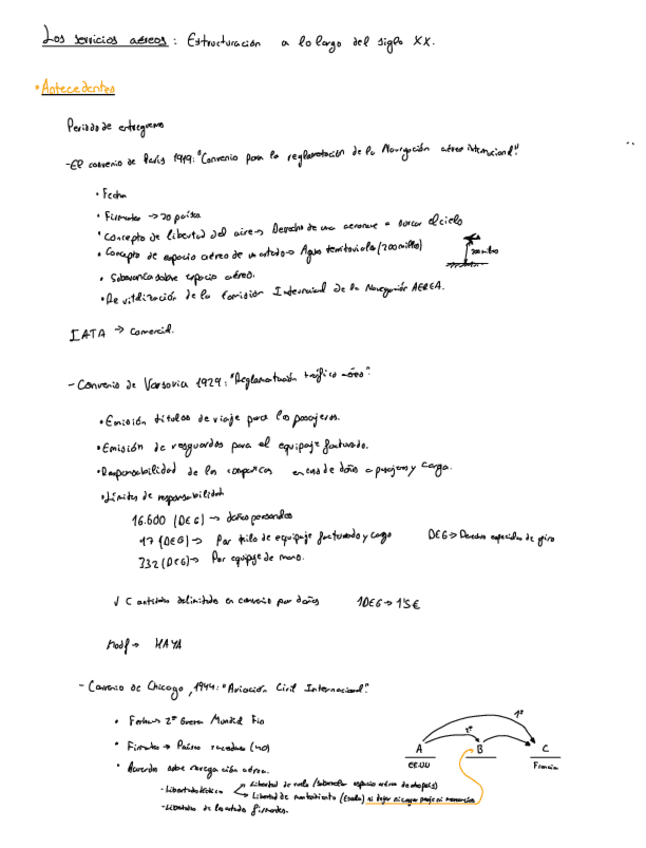 Los servicios aéreos: Estructuración a lo largo del siglo XX.
• Antecedentes
Periodo de entreguerras
- El convenio de París 1919: "Convenio para la reglamentación de la Navegación aérea internacional"
• Fecha
• Firmantes -> 20 países
• Concepto de libertad del aire -> Derecho de una aeronave a surcar el cielo
• Concepto de espacio aéreo de un estado -> Aguas territoriales (200 millas)
• Soberanía sobre espacio aéreo.
• de la Comisión Internacional de la Navegación AEREA.
IATA -> Comercial.
- Convenio de Varsovia 1929: "Reglamentación tráfico aéreo".
• Emisión títulos de viaje para los pasajeros.
• Emisión de resguardos para el equipaje facturado.
• Responsabilidad de las en caso de daños a pasajeros y carga.
• Límites de responsabilidad
16.600 (DEG) -> daños personales
17 (DEG) -> Por kilo de equipaje facturado y cargo DEG -> Derechos especiales de giro
332 (DEG) -> Por equipaje de mano.
√ Cantidades delimitadas en convenio por daños 1DEG -> 1'5€
Modf -> HAYA
- Convenio de Chicago, 1944: "Aviación Civil Internacional".
• 2ª Guerra Mundial
• Firmantes -> Países (40)
• Acuerdos sobre navegación aérea.
1ª
2ª
A B C
EE.UU Francia
- Libertad de vuelo (Sobrevolar espacio aéreo de otro país)
Libertad de (Escala) si dejar ni coger pasaje ni
- de los estados firmantes.